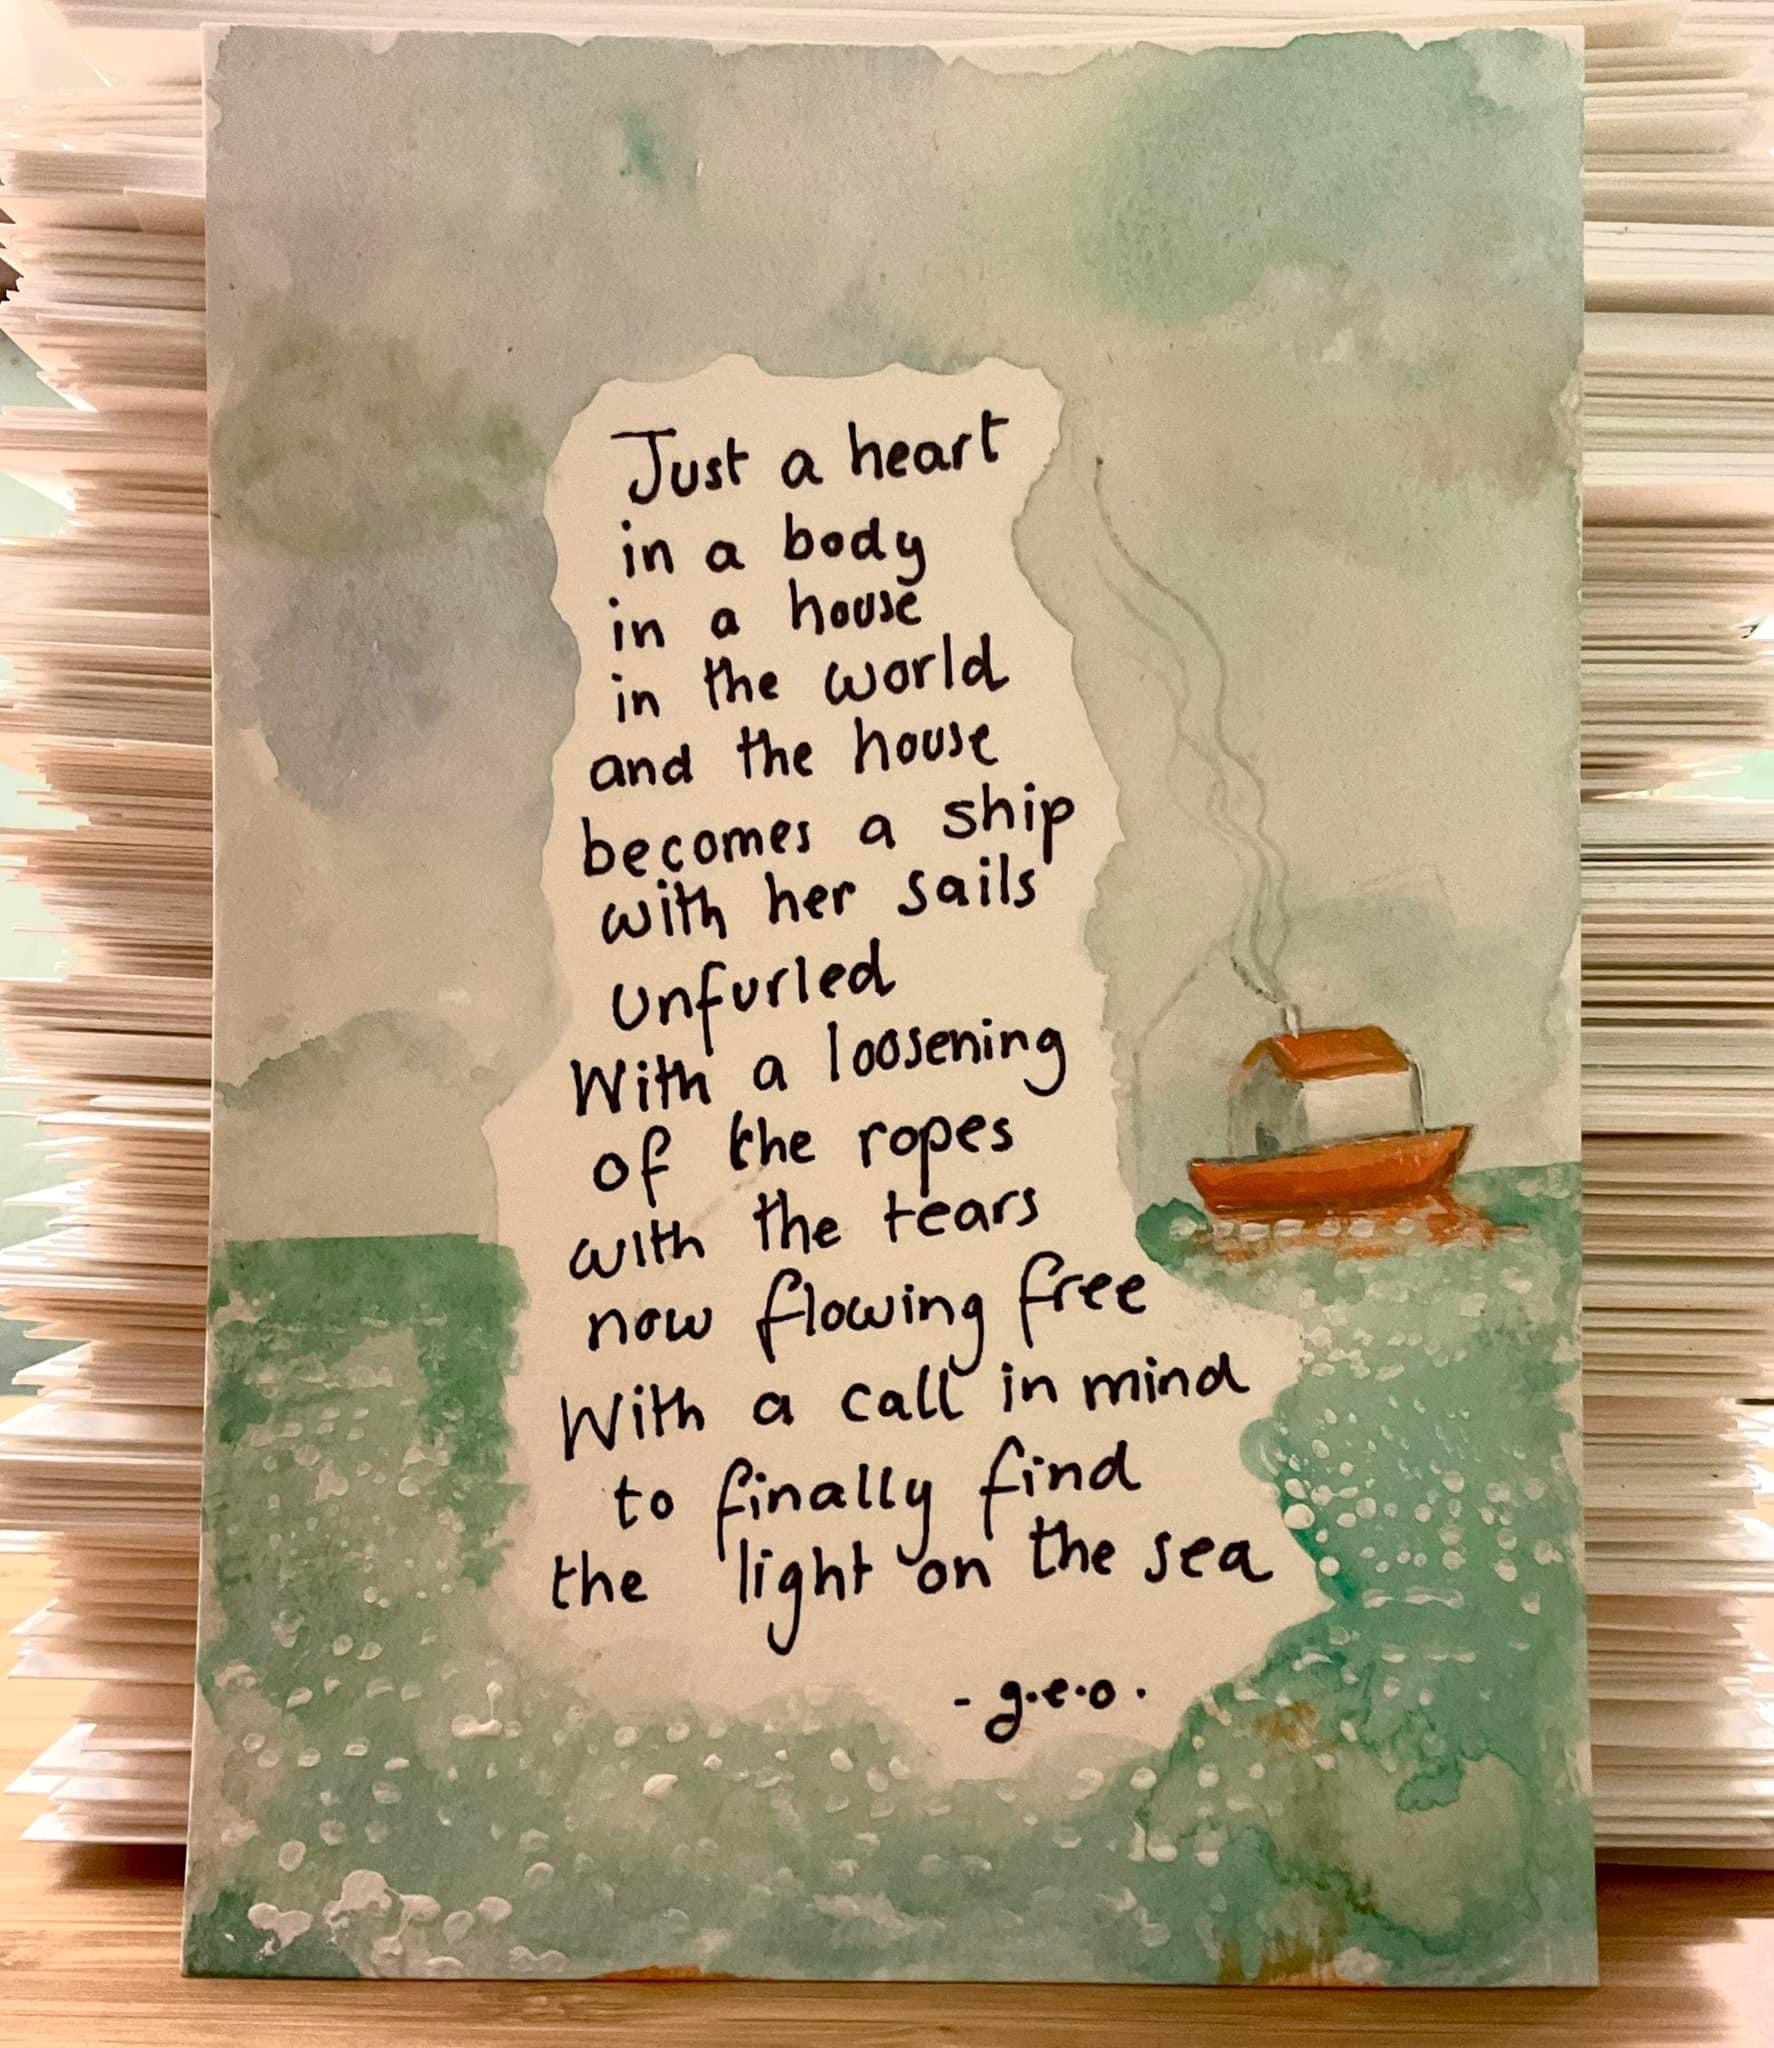 Just a heart
in a body
in a house
in the world
and the house
becomes a ship
with her sails
unfurled
With a loosening
of the ropes
with the tears
now flowing free
With a call in mind
to finally find
the light on the sea
- g.e.o.